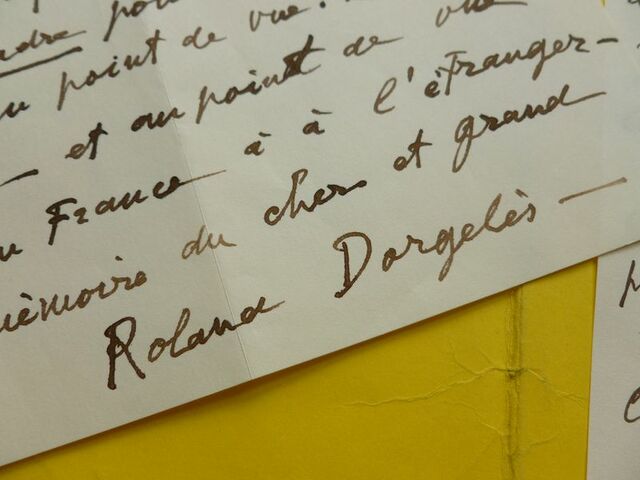 point de vue.
et au point de vue
France à à l'étranger-
mémoire du cher et grand
Roland Dorgelès —